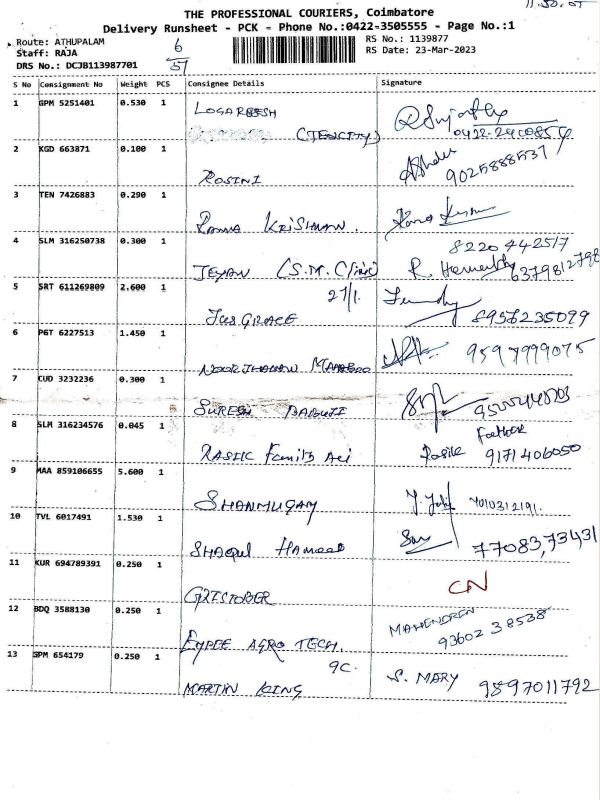 11.30.01
THE PROFESSIONAL COURIERS, Coimbatore
Delivery Runsheet - PCK - Phone No.:0422-3505555 - Page No.:1
Route: ATHUPALAM 6 RS No.: 1139877
Staff: RAJA RS Date: 23-Mar-2023
DRS No.: DCJB113987701 51
S No Consignment No Weight PCS Consignee Details Signature
1 GPM 5251401 0.530 1 LOGARBESH
(TENCITY)
2 KGD 663871 0.100 1 ROSINI 9025888537
3 TEN 7426883 0.290 1 RAMA KRISHNAN. Rama
4 SLM 316250738 0.300 1 JEYAN (S.M. Clinic) 8220442517
R. 6379812798
5 SRT 611269809 2.600 1 27/1.
JUS GRACE 8956235099
6 PGT 6227513 1.450 1 NOORJHAHAN 9597999075
7 CUD 3232236 0.300 1 SURESH BABUJI
8 SLM 316234576 0.045 1 RASIIC Family Aci Father
9171406050
9 MAA 859106655 5.600 1 SHANMUGAM 7010312191.
10 TVL 6017491 1.530 1 SHAQUL HAMEED 77083,73431
11 KUR 694789391 0.250 1 GRISTOBER CN
12 BDQ 3588130 0.250 1 EYPEE AGRO TECH. MAHENDREN
93602 38538
13 GPM 654179 0.250 1 9C.
MARTIN KING S. MARY 9897011792